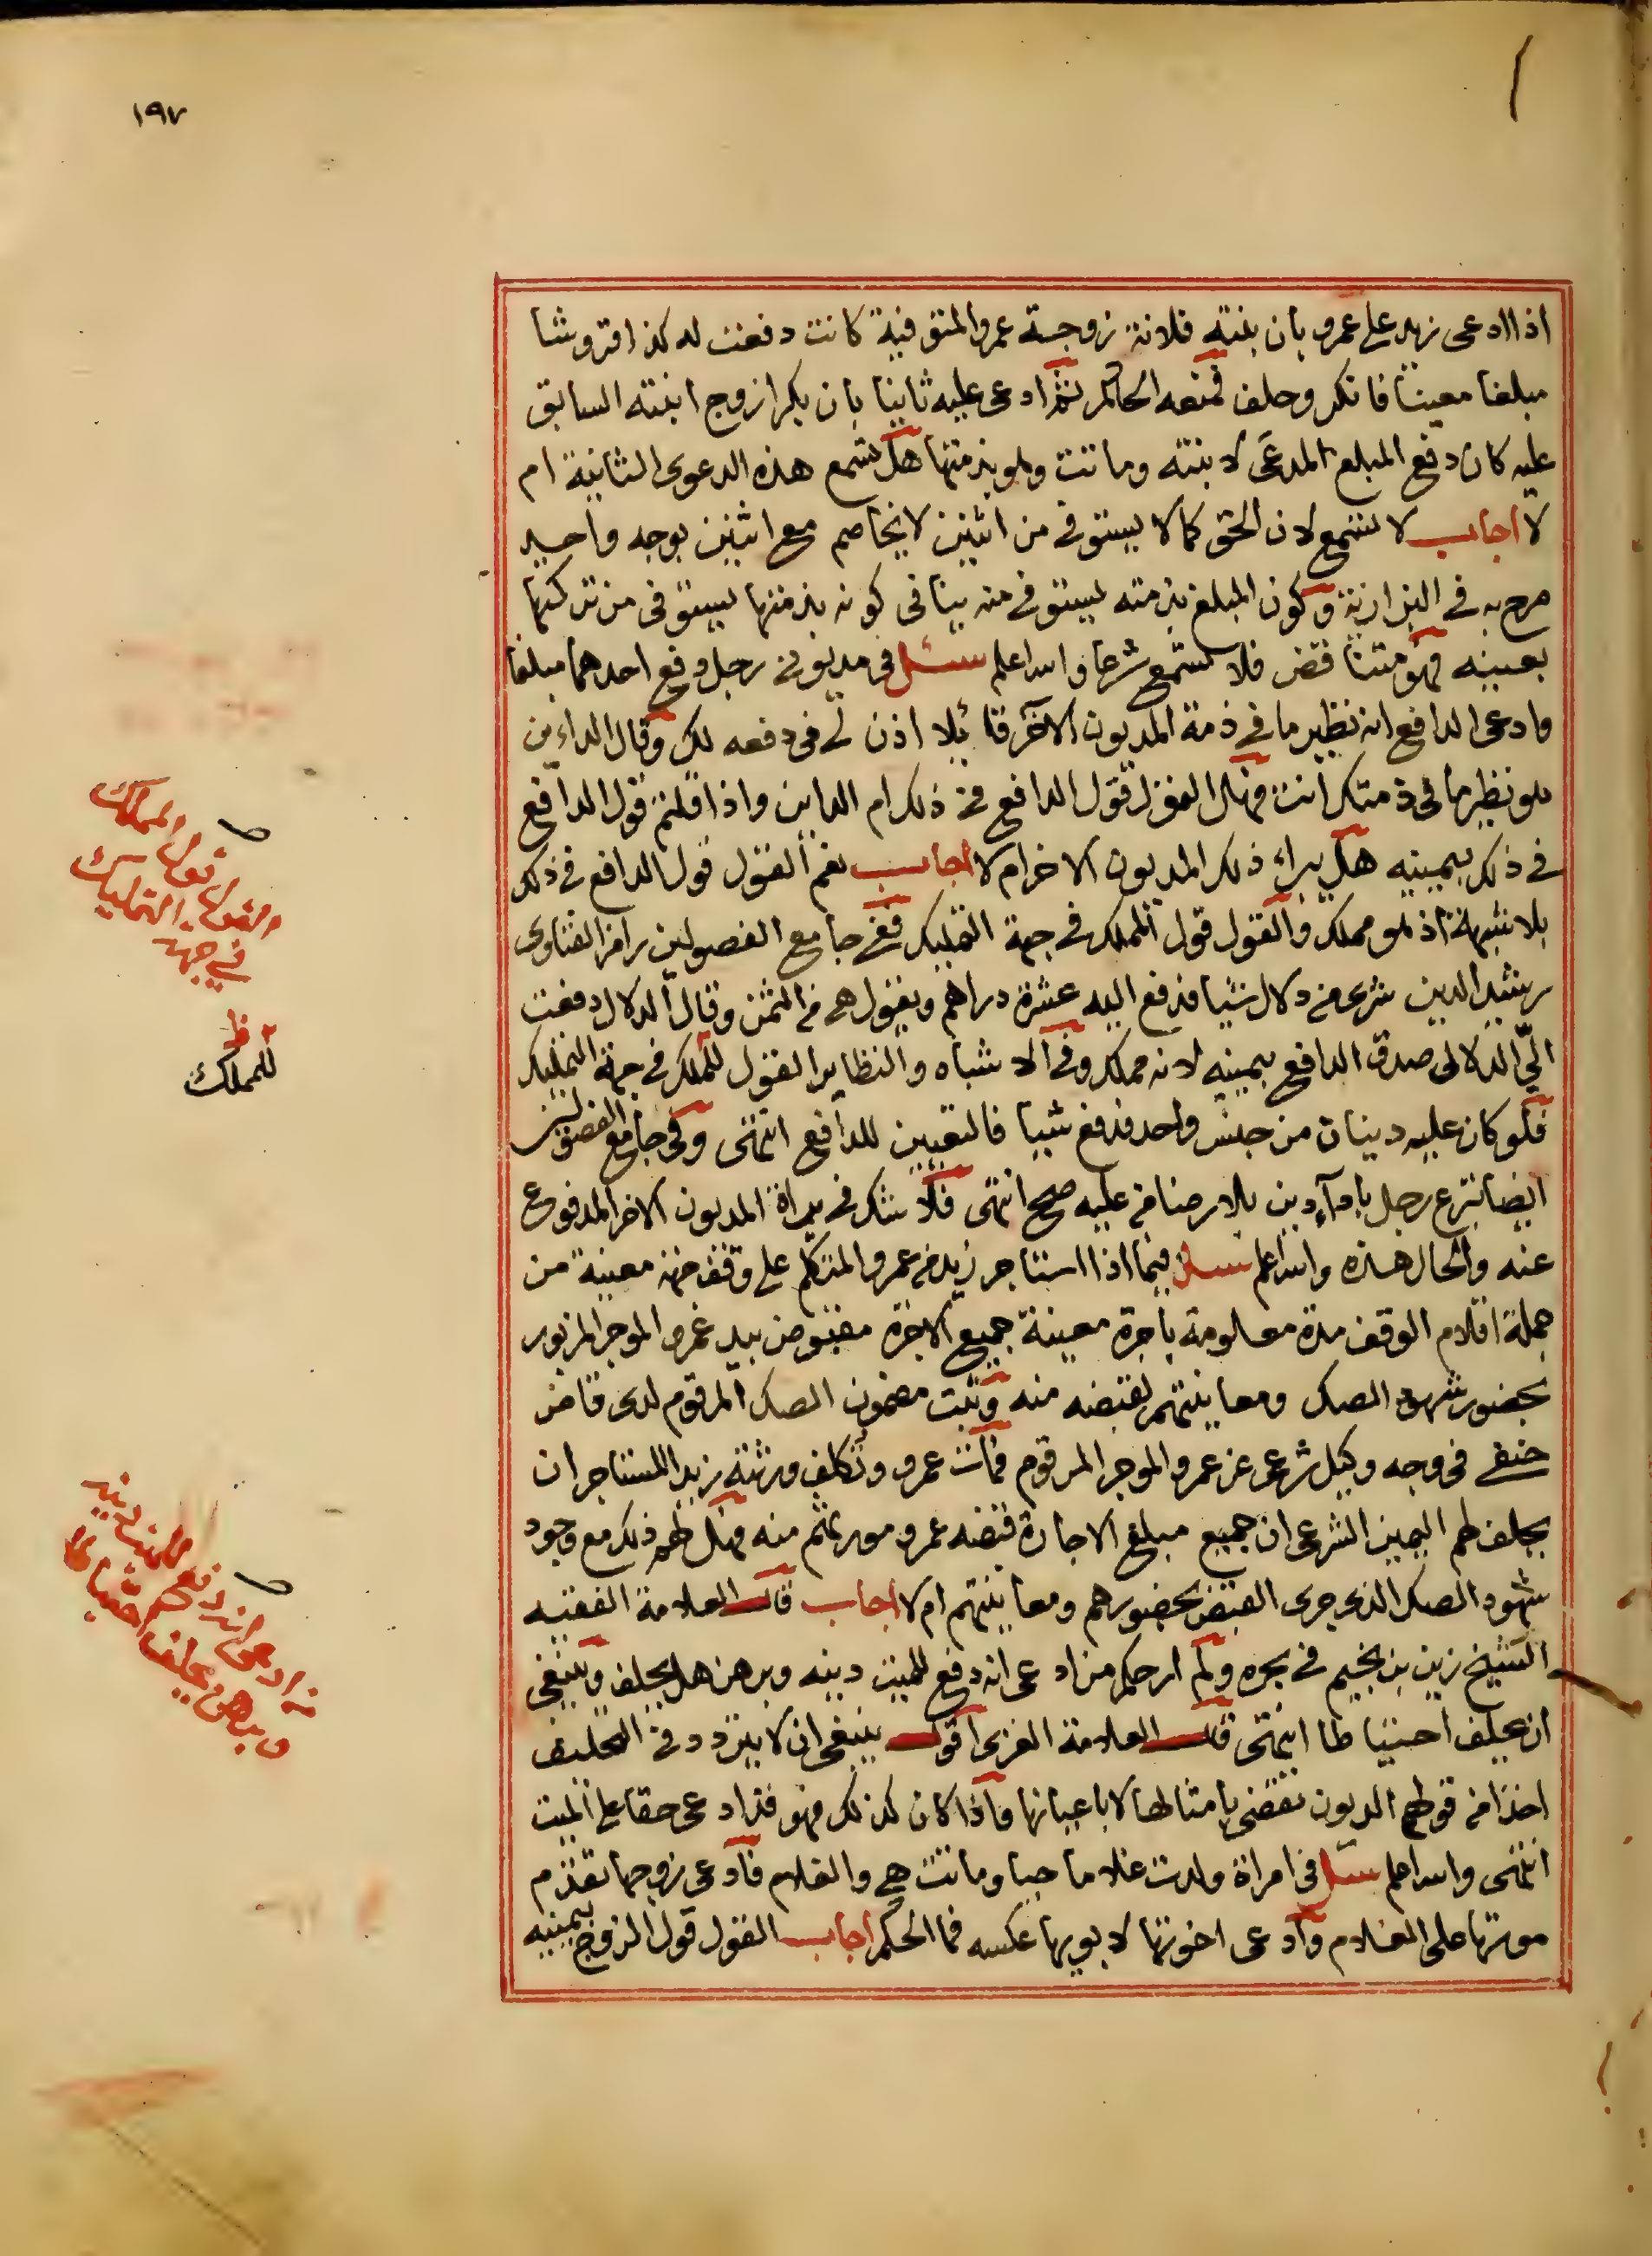 ١٩٧
اذا ادعى زيد على عمرو بان بنته فلانة زوجة عمرو المتوفية كانت دفعت له كذا قروشا
مبلغا معينا فانكر وحلف فمنعه الحاكم ثم ادعى عليه ثانيا بان بكرا زوج ابنته السابق
عليه كان دفع المبلغ المدعى لابنته وماتت وهو بذمتها هل تسمع هذه الدعوى الثانية ام
لا اجاب لا تسمع لان الحق كما لا يستوفى من اثنين لا يخاصم مع اثنين بوجه واحد
صرح به في البزازية وكون المبلغ بذمته يستوفى منه ينافى كونه بذمتها يستوفى من تركتها
بعينه فهو متناقض فلا تسمع شرعا والله اعلم سئل في مديونى رجل دفع احدهما مبلغا
وادعى الدافع انه نظير ما في ذمة المديون الآخر قائلا اذن لى في دفعه لك وقال الداين
هو نظير ما في ذمتك انت فهل القول قول الدافع في ذلك ام الداين واذا قلتم قول الدافع
في ذلك بيمينه هل يبراء ذلك المديون الاخر ام لا اجاب نعم القول قول الدافع في ذلك
بلا شبهة اذ هو مملك والقول قول المملك في جهة التمليك ففي جامع الفصولين رامز الفتاوى
رشيد الدين شرى من دلال شيا فدفع اليه عشرة دراهم ويقول هى من الثمن وقال الدلال دفعت
الىّ الدلالى صدق الدافع بيمينه لانه مملك وفى الاشباه والنظاير القول للملك في جهة التمليك
فلو كان عليه دينان من جنس واحد فدفع شيا فالتعيين للدافع انتهى وفى جامع الفصولين
ايضا تبرع رجل باداء دين بلا رضا من عليه صح انتهى فلا شك في براة المديون الاخر المدفوع
عنه والحال هذه والله اعلم سئل فيما اذا استاجر زيد من عمرو المتكلم على وقف جهة معينة من
جملة اقلام الوقف مدة معلومة باجرة معينة جميع الاجرة مقبوض بيد عمرو الموجر المزبور
بحضور شهود الصك ومعاينتهم لقبضه منه وثبت مضمون الصك المرقوم لدى قاض
حنفى في وجه وكيل شرعى عن عمرو الموجر المرقوم فمات عمرو وتكلف ورثته زيدا المستاجر ان
يحلف لهم اليمين الشرعى ان جميع مبلغ الاجارة قبضه عمرو مورثهم منه فهل لهم ذلك مع وجود
شهود الصك الذى جرى القبض بحضورهم ومعاينتهم ام لا اجاب قال العلامة الفقيه
الشيخ زين بن نجيم في بحره ولم ار حكم من ادعى انه دفع للميت دينه وبرهن هل يحلف وينبغى
ان يحلف احتياطا انتهى قال العلامة الغزى اقول ينبغى ان لا يتردد في التحليف
اخذا من قولهم الديون تقضى بامثالها لا باعيانها واذا كان كذلك فهو قد ادعى حقا على الميت
انتهى والله اعلم سئل في امراة ولدت غلاما حيا وماتت هى والغلام فادعى زوجها تقدم
موتها على الغلام وادعى اخوتها لابويها عكسه فما الحكم اجاب القول قول الزوج بيمينه
القول قول المملك
في جهة التمليك
ظ
للمملك
من ادعى انه دفع للميت دينه
وبرهن يحلف احتياطا